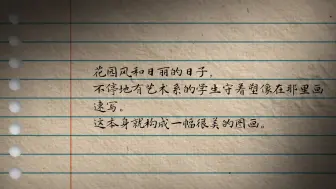 花园风和日丽的日子，
不停地有艺术系的学生守着塑像在那里画
速写。
这本身就构成一幅很美的图画。